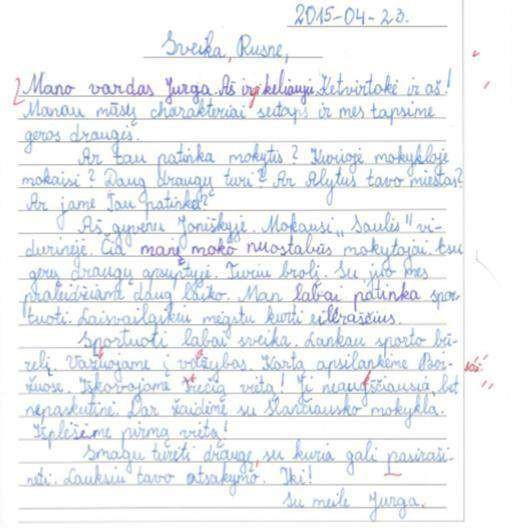 2015-04-23.
Sveika, Rusne,
Mano vardas Jurga. Aš irgi keliauju. Ketvirtokė ir aš!
Manau mūsų charakteriai sutaps ir mes tapsime
geros draugės.
Ar tau patinka mokytis? Kurioje mokykloje
mokaisi? Daug draugų turi? Ar Alytus tavo miestas?
Ar jame Tau patinka?
Aš gyvenu Joniškyje. Mokausi „Saulės" vi-
durinėje. Čia mane moko nuostabūs mokytojai. Esu
gerų draugų apsuptyje. Turiu brolį. Su juo mes
praleidžiame daug laiko. Man labai patinka spor-
tuoti. Laisvalaikiu mėgstu kurti eilėraščius.
Sportuoti labai sveika. Lankau sporto bū-
relį. Važiuojame į varžybas. Kartą apsilankėme
žuose. Iškovojome trečią vietą! Ji neaugščiausia, bet
nepaskutinė. Dar žaidėme su mokykla.
Išplėšėme pirmą vietą!
Smagu turėti draugę, su kuria gali pasiraši-
nėti. Lauksiu tavo atsakymo. Iki!
Su meile Jurga.